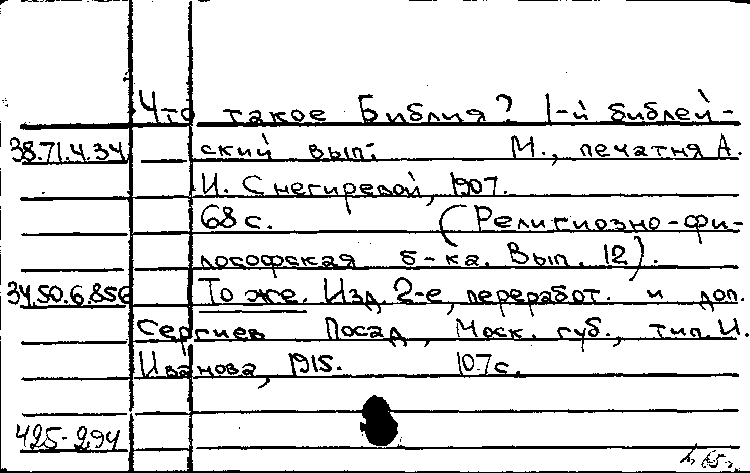 Что такое Библия? 1-й библей-
38.71.4.34 ский вып: М., печатня А.
И. Снегиревой, 1907.
68 с. (Религиозно-фи-
лософская б-ка. Вып. 12).
34.50.6.856 То же. Изд. 2-е, переработ. и доп.
Сергиев Посад, Моск. губ., тип. И.
Иванова, 1915. 107 с.
425-294